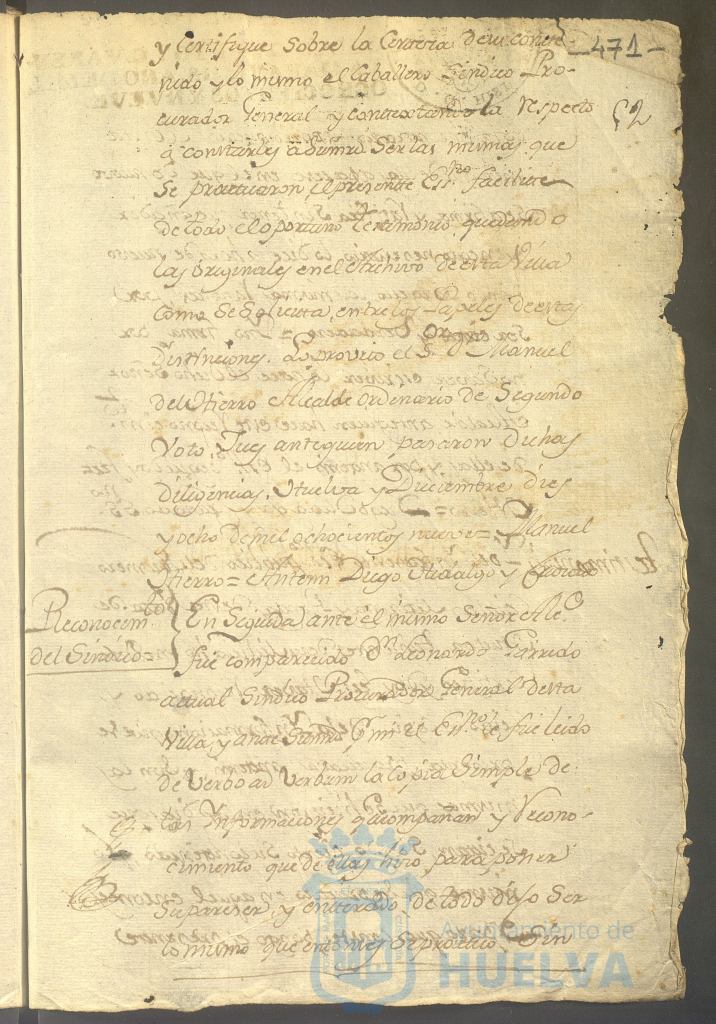 y Certifique sobre la Certeza de su conte-
-471-
nido y lo mismo el Caballero Sindico Pro-
curador General y contextandola respecto
52
à constarles àdsumd. Ser las mismas que
se practicaron, el presente Ess.no facilite
de todo el oportuno testimonio quedando
las originales en el Archivo de esta Villa
como se solicita, entre los Papeles de estas
Distinciones. Lo proveio el S.r D.n Manuel
del Hierro Alcalde ordinario de Segundo
Voto, Jues ante quien pasaron dichas
diligencias. Huelva y Diciembre dies
y ocho de mil ochocientos nueve = Manuel
Hierro = Antemi Diego Hidalgo y
Reconocim.to
del Sindico =
En Seguida ante el mismo Señor Alc.e
fue comparecido D.n Leonardo Garrido
actual Sindico Procurador General desta
Villa, y ante Sumrd. y mi el Ess.no le fue leido
de Verbo ad Verbum la Copia Simple de
las Informaciones q acompañan y recono-
cimiento que de ellas hiso para poner
su pareser, y enterado de todo dijo Ser
lo mismo que entonses se practicó, Sin
Ayuntamiento de
HUELVA